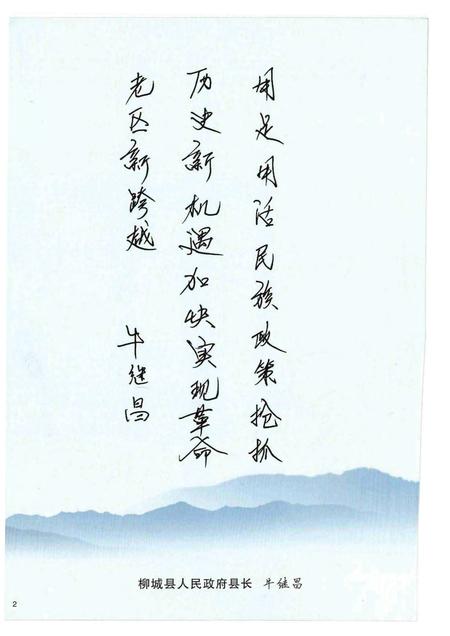 用足用活民族政策抢抓
历史新机遇加快实现革命
老区新跨越
牛继昌
柳城县人民政府县长 牛继昌
2